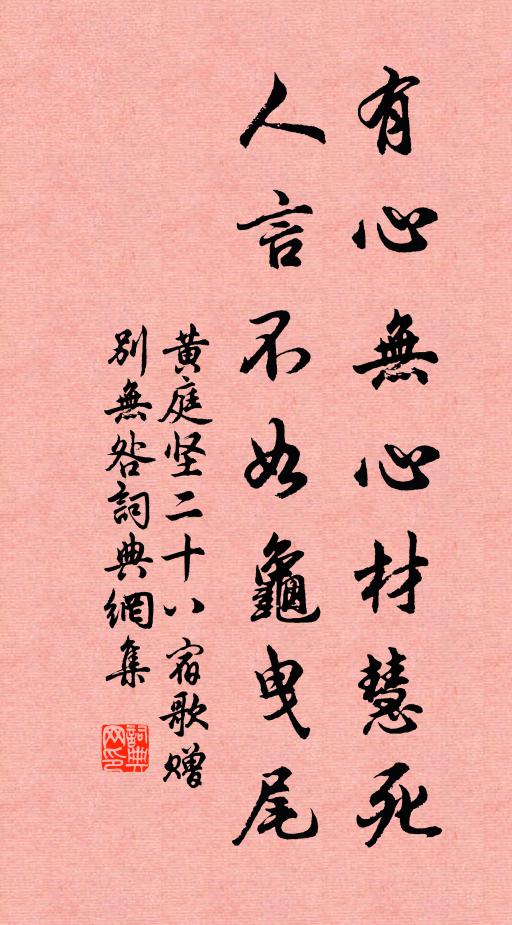 有心無心材慧死
人言不如龜曳尾
黄庭坚二十八宿歌赠
别無咎詞典網集
詞典网印